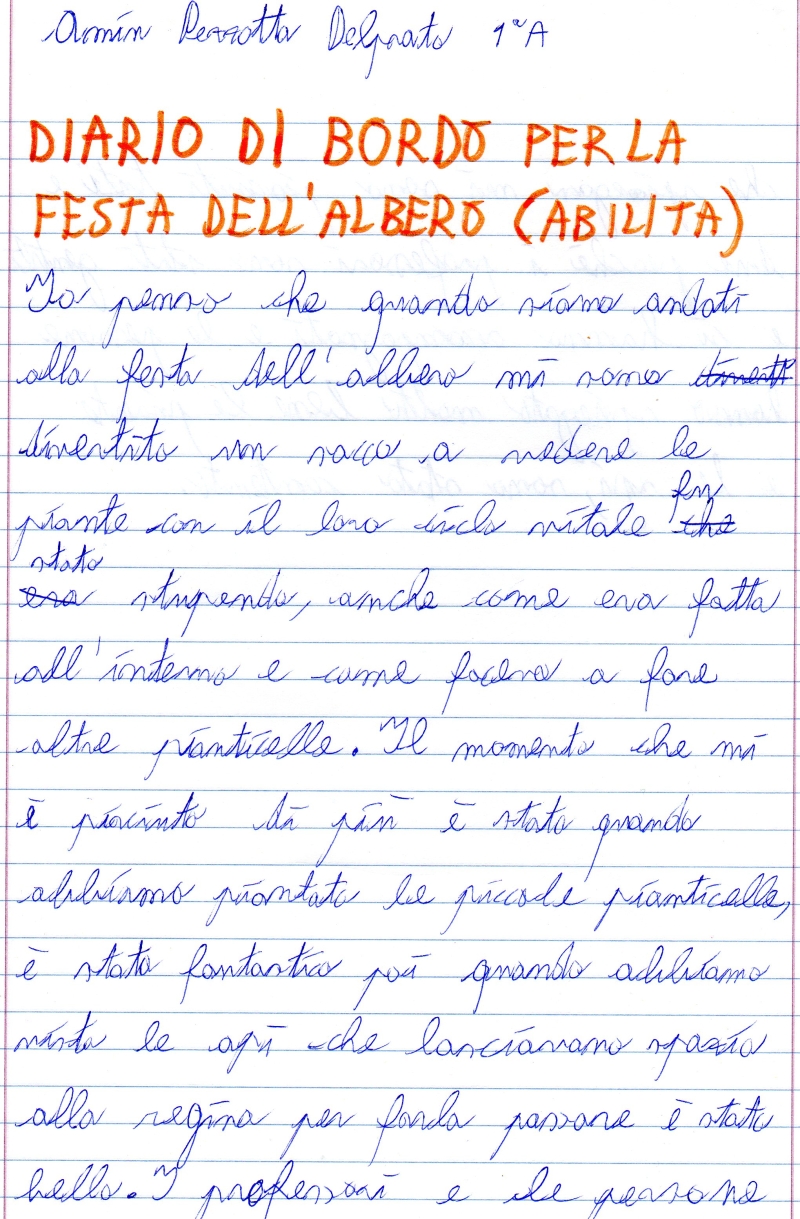 Amin Pezzotta Delprato 1ªA
DIARIO DI BORDO PER LA
FESTA DELL'ALBERO (ABILITA)
Io penso che quando siamo andati
alla festa dell'albero mi sono
divertito un sacco a vedere le
piante con il loro ciclo vitale fu
stato
era stupendo, anche come era fatta
all'interno e come faceva a fare
altre pianticelle. Il momento che mi
è piaciuto di più è stato quando
abbiamo piantato le piccole pianticelle,
è stato fantastico poi quando abbiamo
visto le api che lasciavano spazio
alla regina per farla passare è stato
bello. I professori e le persone